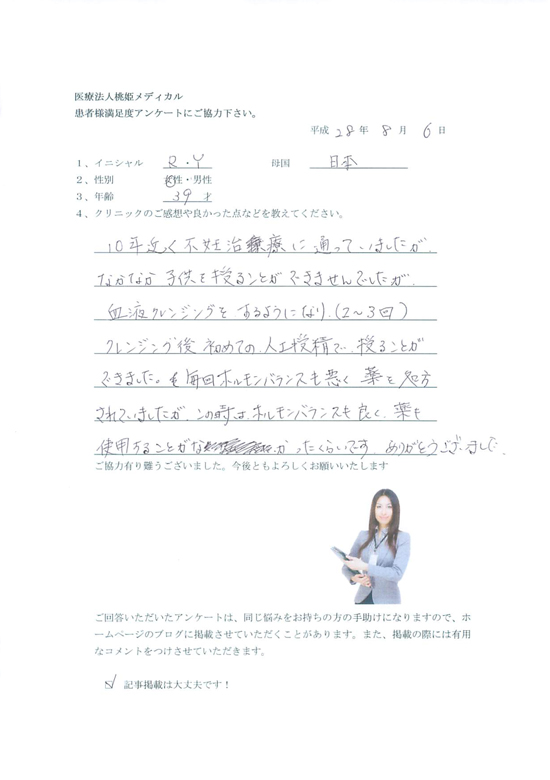 医療法人桃姫メディカル
患者様満足度アンケートにご協力下さい。
平成 28 年 8 月 6 日
1、イニシャル R・Y 母国 日本
2、性別 女性・男性
3、年齢 39 才
4、クリニックのご感想や良かった点などを教えてください。
10年近く不妊治療に通っていましたが、
なかなか子供を授ることができませんでしたが、
血液クレンジングをするようになり、(2〜3回)
クレンジング後初めての人工授精で、授ることが
できました。毎回ホルモンバランスも悪く薬を処方
されていましたが、この時は、ホルモンバランスも良く、薬も
使用することがなかったくらいです。ありがとうございました。
ご協力有り難うございました。今後ともよろしくお願いいたします
ご回答いただいたアンケートは、同じ悩みをお持ちの方の手助けになりますので、ホ
ームページのブログに掲載させていただくことがあります。また、掲載の際には有用
なコメントをつけさせていただきます。
☑ 記事掲載は大丈夫です！